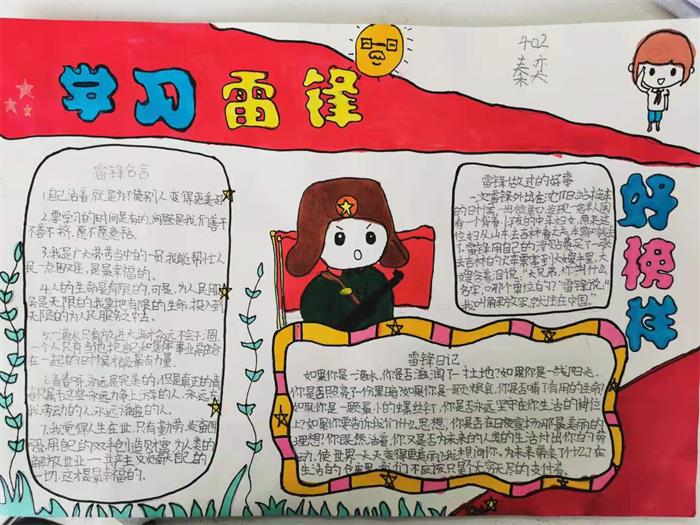 学习雷锋
402
秦奕
好榜样
雷锋名言
1.自己活着,就是为了使别人变得更美好
2.要学习的时间是有的,问题是我们善于
不善于挤,愿不愿意钻.
3.我是广大劳苦当中的一员,我能帮忙人
民一点困难,是最幸福的.
4.人的生命是有限的,可是,为人民服
务是无限的我要把有限的生命,投入到
无限的为人民服务之中去.
5.一滴水只有放进大海才永远不会干涸,
一个人只有当他把自己和集体事业融合
在一起的时候才能最有力量
6.青春啊,永远是美的,但是真正的青
春,只属于这些永远力争上游的人,永远忘
我劳动的人,永远谦虚的人.
7.我觉得人生在世,只有勤劳,发奋图
强,用自己的双手创造财富,为人类的
解放事业一共产主义贡献自己的
一切,这才是最幸福的.
雷锋做过的好事
一次雷锋外出在沈阳站换车
的时候
一个背着小孩的中年妇女
雷锋用自己的津贴费买了一张
去吉林的火车票塞到大嫂手里,大
嫂含着泪说:"大兄弟,你叫什么
名字,哪个单位的?"雷锋说:"
我叫解放军,就住在中国."
雷锋日记
如果你是一滴水,你是否滋润了一寸土地?如果你是一线阳光,
你是否照亮了一份黑暗?如果你是一颗粮食,你是否哺育有用的生命?
如果你是一颗最小的螺丝钉,你是否永远坚守在你生活的岗位
上?如果你要告诉我们什么思想,你是否在日夜宣扬那最美丽的
理想?你既然活着,你又是否为未来的人类的生活付出你的劳
动,使世界一天天变得更美丽?我想问你,为未来带来了什么?在
生活的仓库里,我们不应该只是个无穷无尽的支付者.